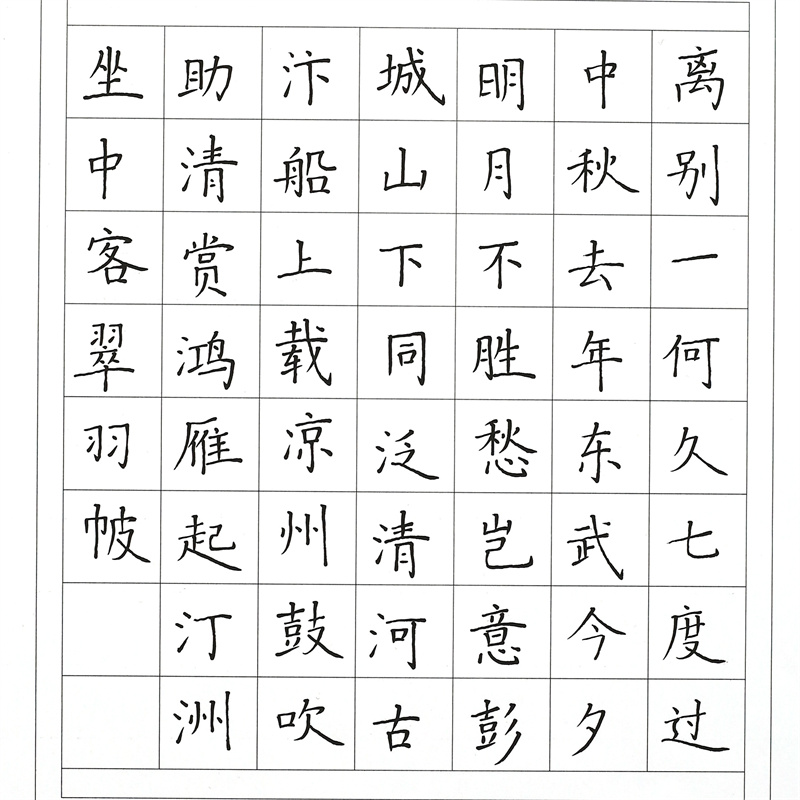 离别一何久七度过
中秋去年东武今夕
明月不胜愁岂意彭
城山下同泛清河古
汴船上载凉州鼓吹
助清赏鸿雁起汀洲
坐中客翠羽帔